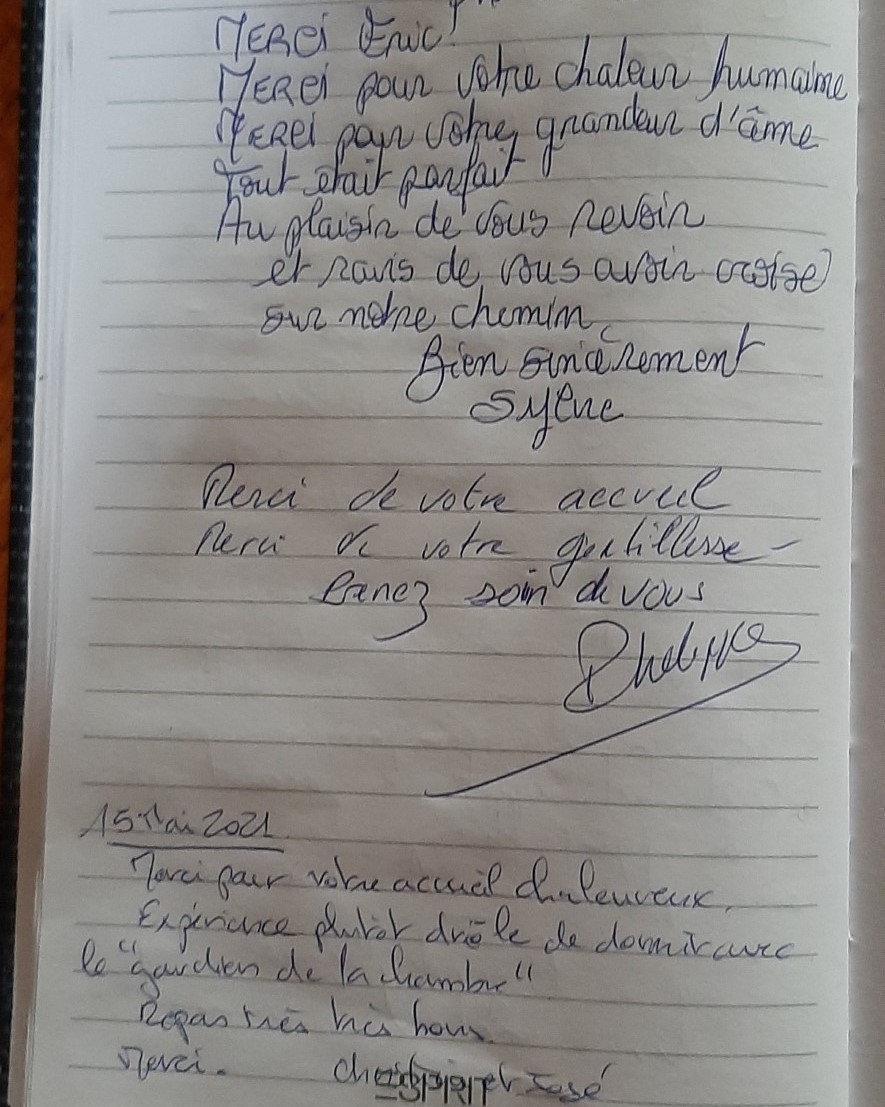 MERCI Eric!
MERCI pour votre chaleur humaine
MERCI pour votre grandeur d'âme
Tout était parfait
Au plaisir de vous revoir
et ravis de vous avoir croisé
sur notre chemin
Bien sincèrement
Sylvie
Merci de votre accueil
Merci de votre gentillesse -
Prenez soin de vous
Philippe
15 Mai 2021
Merci pour votre accueil chaleureux.
Expérience plutôt drôle de dormir avec
le "gardien de la chambre"
Repas très très bons.
Merci. et José